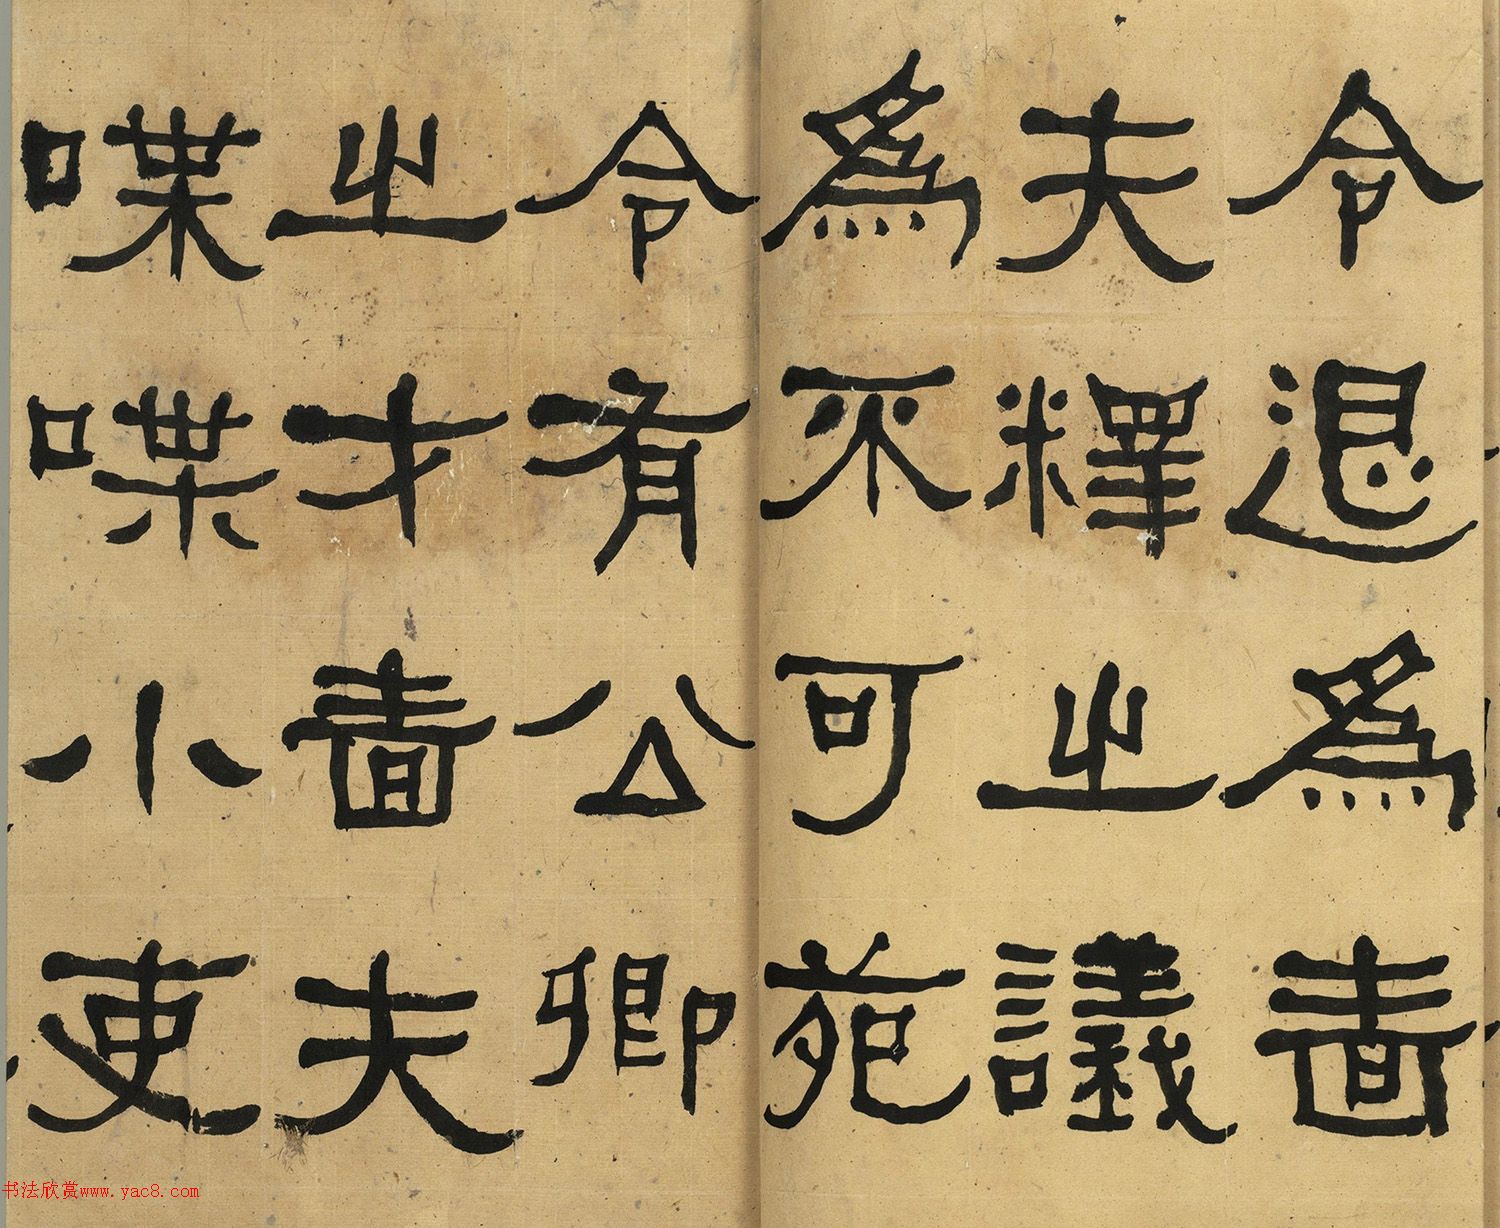 令退為嗇
夫釋之議
為不可苑
令有公卿
之才嗇夫
喋喋小吏
书法欣赏www.yac8.com